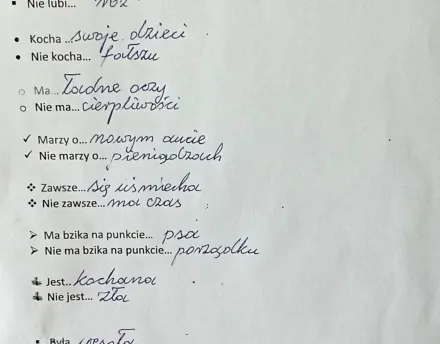 Nie lubi...
Kocha ...swoje dzieci
Nie kocha... fałszu
Ma... ładne oczy
Nie ma... cierpliwości
Marzy o... nowym aucie
Nie marzy o... pieniądzach
Zawsze... się uśmiecha
Nie zawsze... ma czas
Ma bzika na punkcie... psa
Nie ma bzika na punkcie... porządku
Jest.. kochana
Nie jest... zła
Była